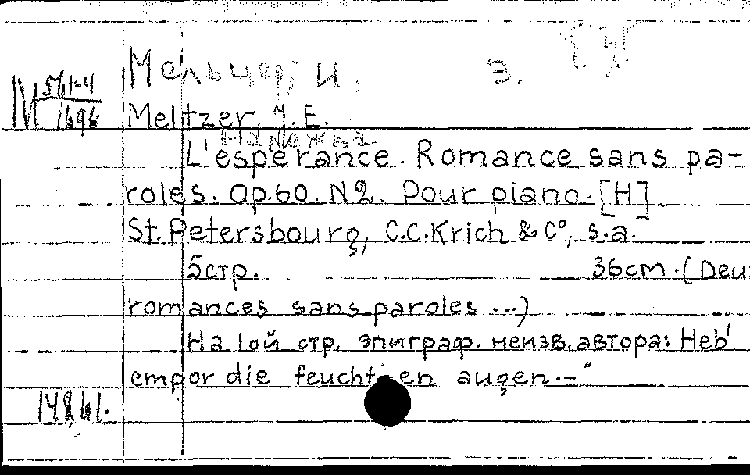 Мельцер, И. Э.
М 57/1-4
1696
Meltzer, J. E.
Надежда.
L'espérance. Romance sans pa-
roles. Op. 60. N2. Pour piano. [H]
St. Petersbourg, C.C. Krich & C°, s.a.
5 стр. 36 см. (Deux
romances sans paroles ...)
На 1ой стр. эпиграф. неизв. автора: Heb'
empor die feuchten augen.-"